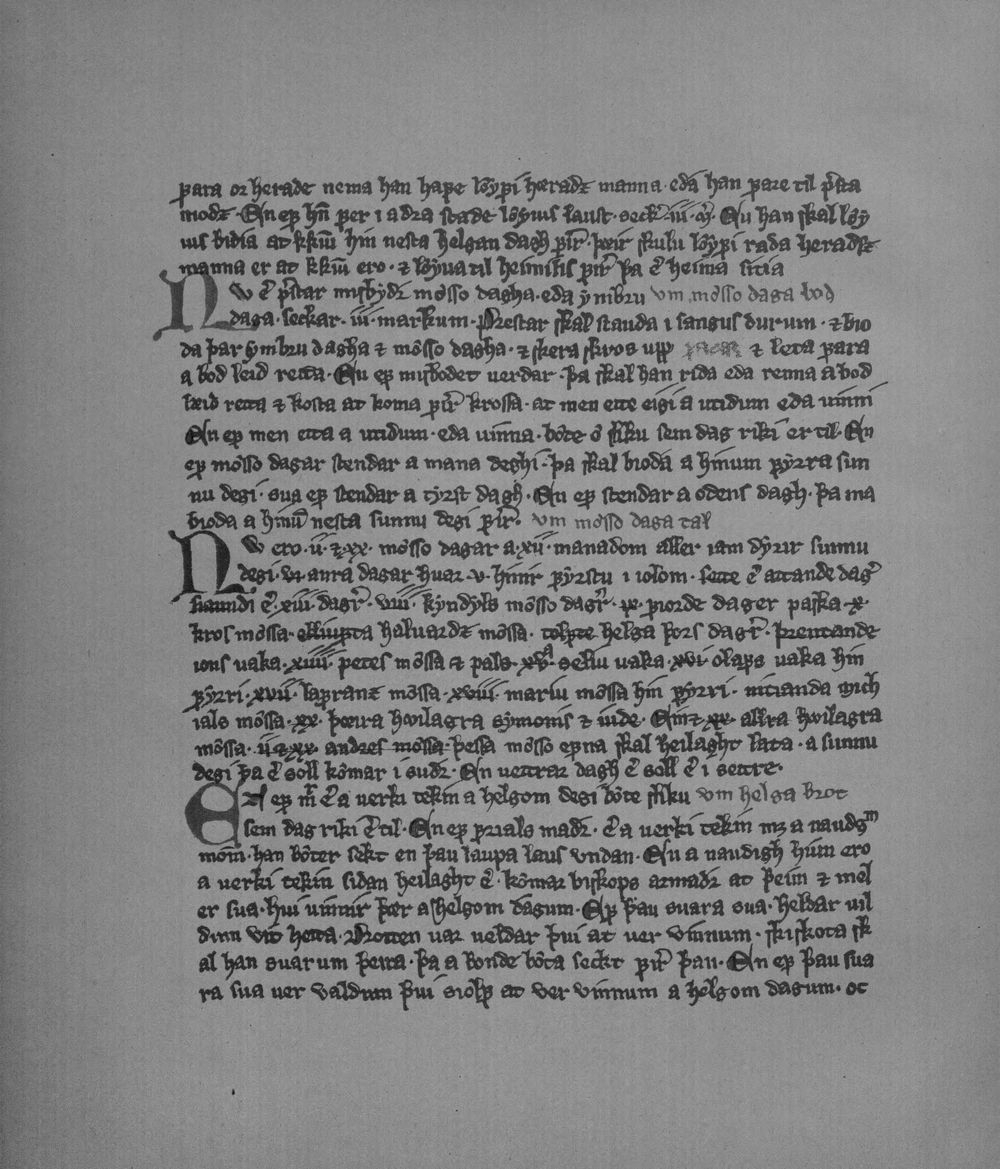 fara or herade nema han hafe løyfi hæradz manna · eda han fare til presta
motz · En ef hn̄ fer i adra stade løyuis laust · seckr iii · Nu han skal løy
uis bidia at kkiu hin nesta helgan dagh firir · þæir skulu løyfi rada heradz
manna er at kkiu ero · ⁊ løyua til heimilis firir þa er heima sitia
Nw er prestar misbydr mosso dagha · eda ymbru vm mosso daga bod
daga · seckar · iii · markum · Prestar skal standa i sangus durum · ⁊ bio
da þar ymbru dagha ⁊ mosso dagha · ⁊ skera kros upp ⁊ leta fara
a bod leid retta · En ef misbodet verdar · þa skal han rida eda renna a bod
læid retta ⁊ kosta at koma firir krossa · at men ette eigi a utidum eda uinni
En ef men etta a utidum · eda uinna · bote sliku sem dag riki er til · En
ef mosso dagar stendar a mana deghi · þa skal bioda a hinum fyrra sun
nu degi · sua ef stendar a tyrs dagh · En ef stendar a odens dagh · þa ma
bioda a hinu nesta sunnu degi firir · vm mosso daga tal
Nw ero · ii · ⁊ · xx · mosso dagar a · xii · manadom aller iam dyrir sunnu
degi · vi · anra dagar huar · v · hinir fyrstu i iolom · sette er attande dagr
er · xiii · dagr · viii · kyndyls mosso dagr · ix · fiorde dager paska · x ·
kros mossa · elliufta haluardz mossa · tolfte helga þors dagr · þrettande
ions uaka · xiiii · petes mossa ⁊ pals · xv · seliu uaka · xvi olafs uaka hin
fyrri · xvii · lafranz mossa · xviii · mariu mossa hin fyrri · nitianda mich
ials mossa · xx · þæira hæilagra symonis ⁊ iude · En ⁊ xx · allra hæilagra
mossa · ii ⁊ xx · andres mossa · þessa mosso efna skal heilaght lata · a sunnu
degi þa er soll komar i sudr · En vettrar dagh er soll er i settre ·
En ef mr er a uerki tekin a helgom degi bote sliku vm helga brot
sem dag riki er til · En ef frials madr · er a uerki tekin mz a naudgm
mom · han boter sekt en þau laupa laus vndan · En a naudigh hium ero
a uerki tekin sidan heilaght er · komar biskops armadr at þeim ⁊ mel
er sua · hui uinnir þær a helgom dagum · Ef þau suara sua · heldar uil
dum vit hetta · Drotten uar ueldar þui at ver vinnum · ski skota sk
al han suarum þeira · þa a bonde bota seckt firir þau · En ef þau sua
ra sua uer valdum þui siolf at ver vinnum a helgom dagum · oc